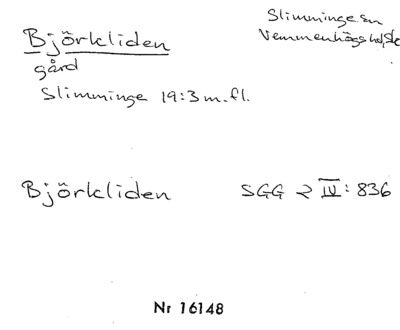 Björkliden
Slimminge sn
Vemmenhögs hd, Sk
gård
Slimminge 19:3 m.fl.
Björkliden
SGG 2 IV: 836
Nr 16148